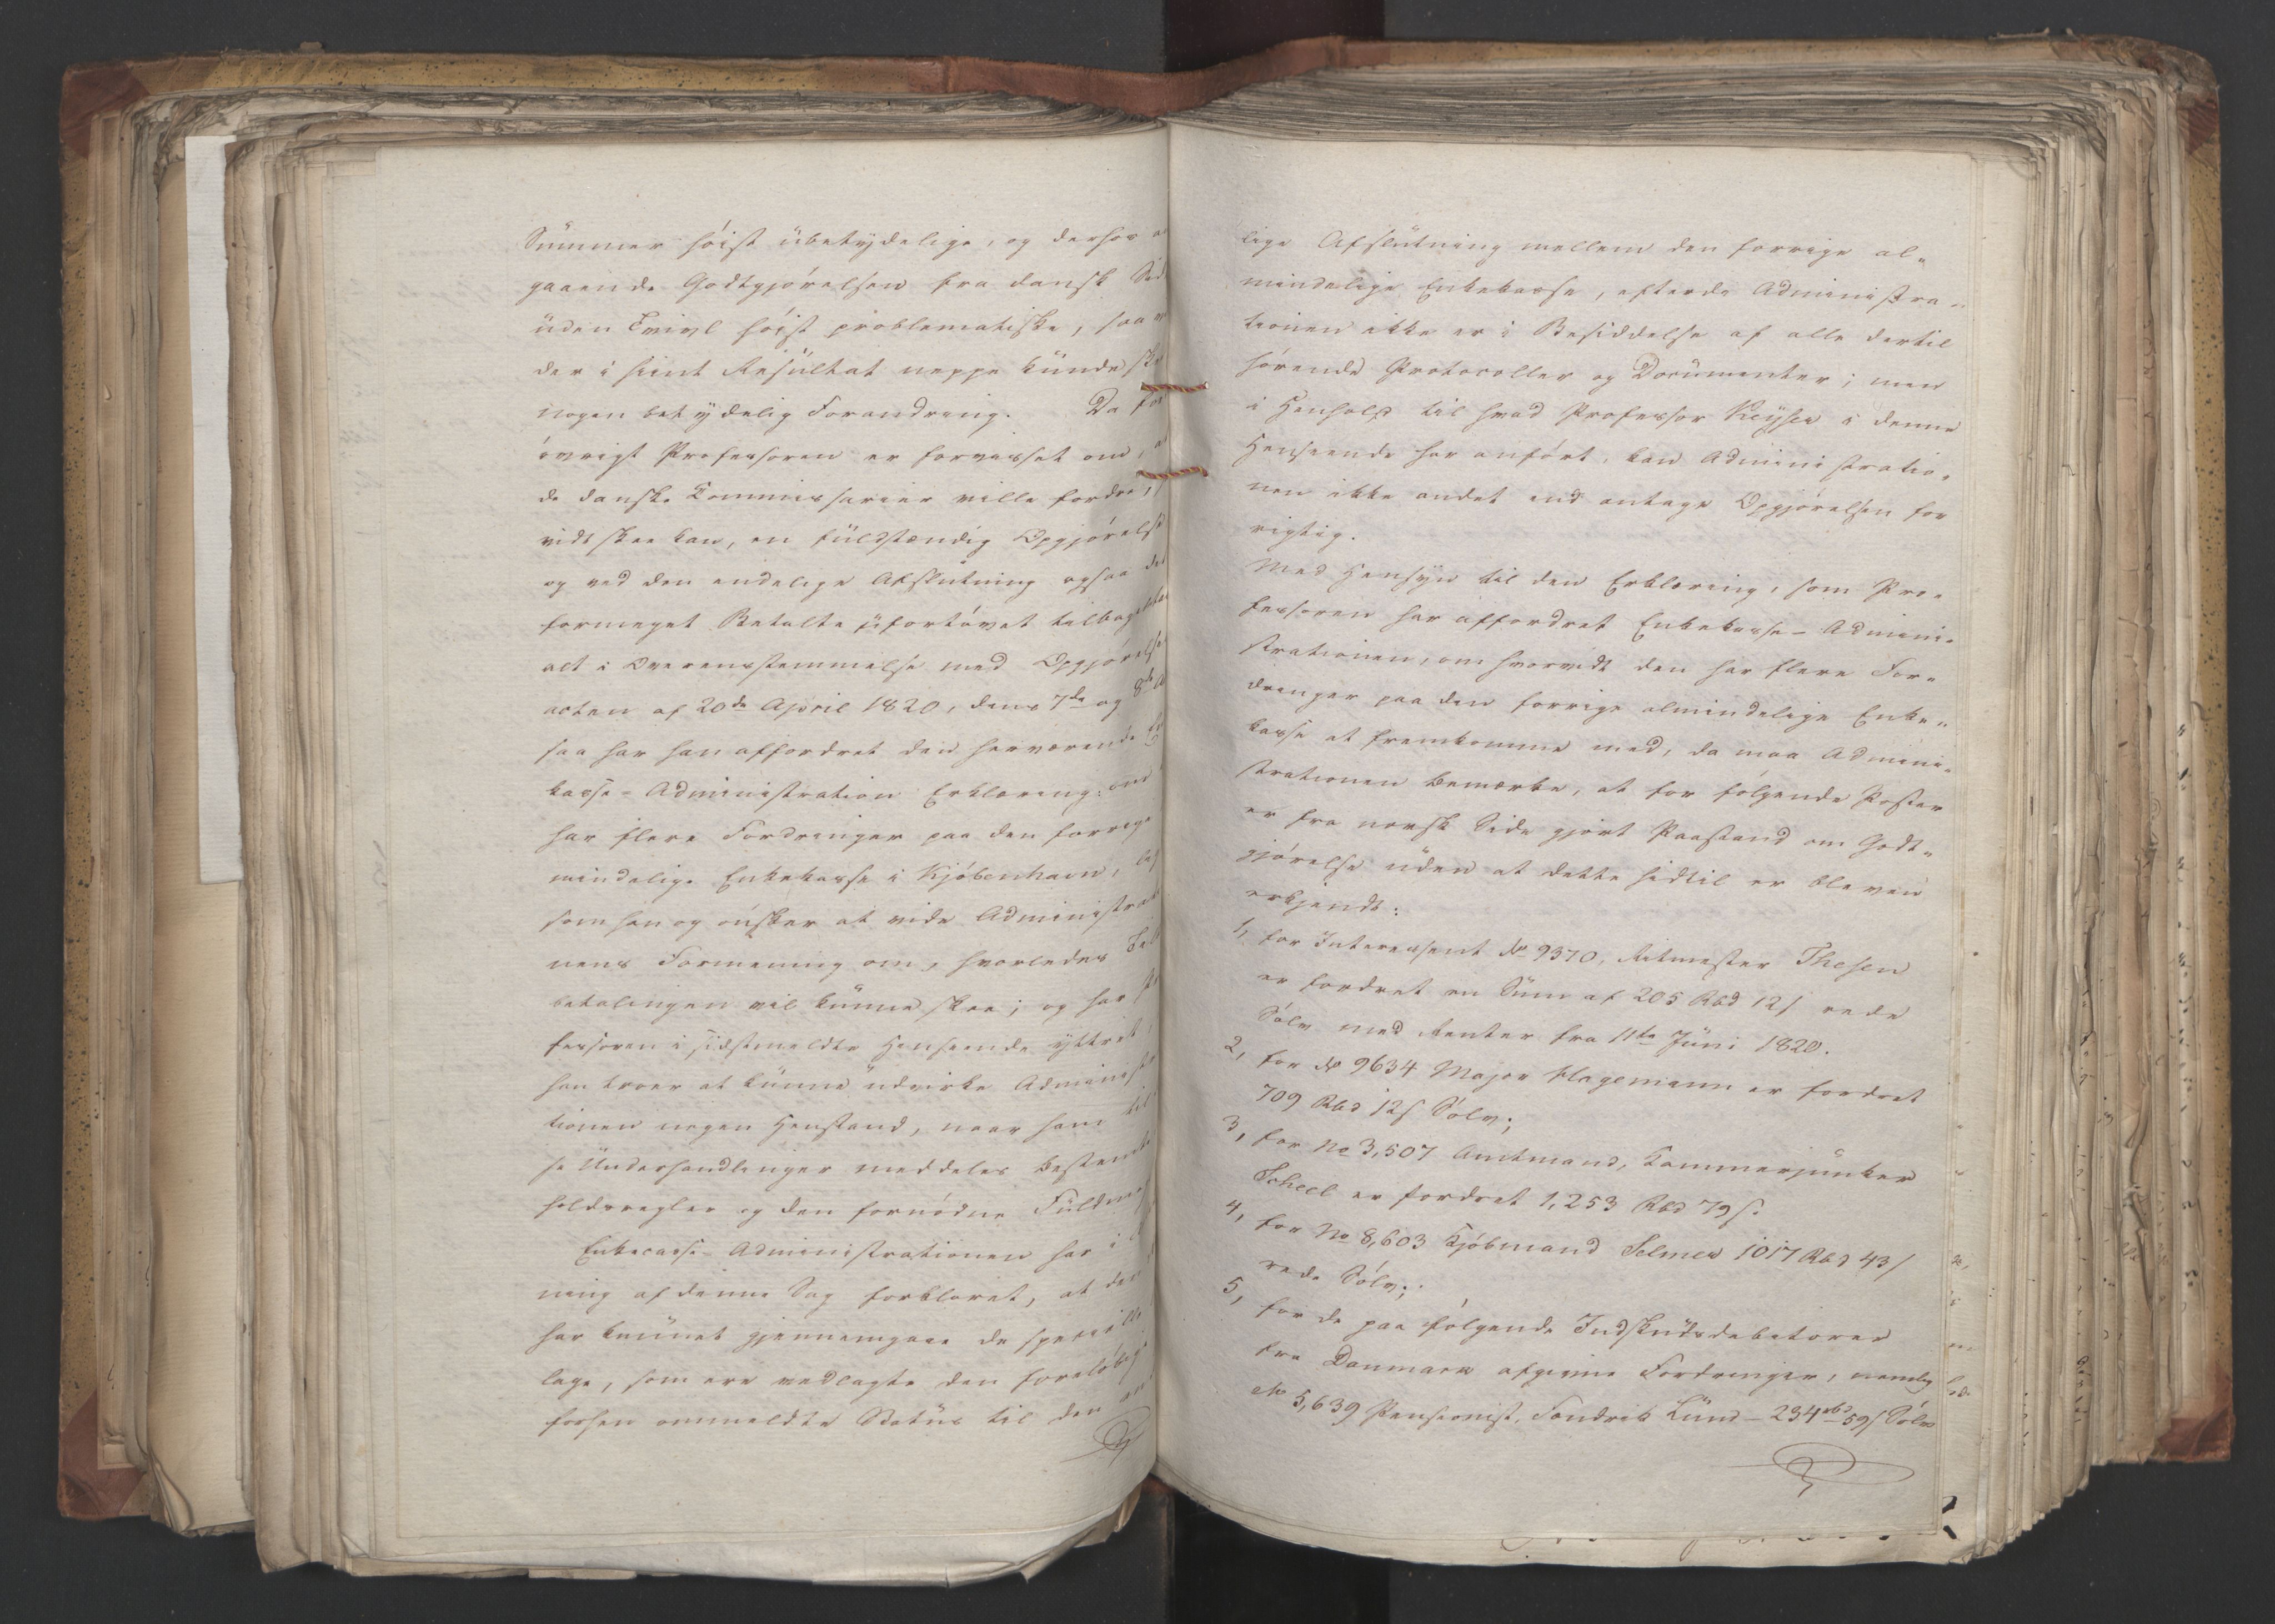 Summer høist ubetydelige, og derhos
gaaende Godtgjørelsen fra dansk Sid
uden Tvivl høist problematiske, saa
der i hiint Resultat neppe kunde skee
nogen betydelig Forandring. Da for
øvrigt Professoren er forvisset om, at
de danske Commissarier ville fordre,
vidt skee kan, en fuldstændig Opgjørelse
og ved den endelige Afslutning ogsaa det
formeget Betalte ufortøvet tilbagebetal
alt i Overensstemmelse med Opgjørelses
acten af 20de April 1820, dens 7de og 8de A
saa har han affordret den herværende
kasse-Administration Erklæring: om
har flere Fordringer paa den forrige
mindelige Enkekasse i Kjøbenhavn, lige
som han og ønsker at vide Administrat
nens Formening om, hvorledes Tilb
betalingen vil kunne skee; og har Pro
fessoren i sidstmeldte Henseende yttret,
han troer at kunne udvirke Administra
tionen nogen Henstand, naar ham til
se Underhandlinger meddeles bestemte
holdsregler og den fornødne Fuldm
Enkecasse-Administrationen har i
ning af denne Sag forklaret, at den
har kunnet gjennemgaae de specielle
lage, som ere vedlagte den foreløbige
forhen ommeldte Status til den
lige Afslutning mellem den forrige al-
mindelige Enkekasse, efterdi Administra-
tionen ikke er i Besiddelse af alle dertil
hørende Protocoller og Documenter; men
i Henhold til hvad Professor Keyser i denne
Henseende har anført, kan Administratio-
nen ikke andet end antage Opgjørelsen for
rigtig.
Med Hensyn til den Erklæring, som Pro-
fessoren har affordret Enkekasse-Admini-
strationen, om hvorvidt den har flere For-
dringer paa den forrige almindelige Enke-
kasse at fremkomme med, da maa Admini-
strationen bemærke, at for følgende Poster
er fra norsk Side gjort Paastand om Godt-
gjørelse uden at dette hidtil er bleven
erkjendt:
1, for Interessent No 9370, Ritmester Thesen
er fordret en Sum af 205 Rbd 12 s rede
Sølv med Renter fra 11te Juni 1820.
2, for No 9634 Major Hagemann er fordret
709 Rbd 12 s Sølv;
3, for No 3,507 Amtmand, Kammerjunker
Scheel er fordret 1,253 Rbd 79 s.
4, for No 8,603 Kjøbmand Selmer 1017 Rbd 43 s
rede Sølv;
5, for de paa følgende Indskudsdebitorer
fra Danmark afgivne Fordringer, nemlig
No 5,639 Pensionist, Fændrik Lund – 234 rbd 59 s Sølv